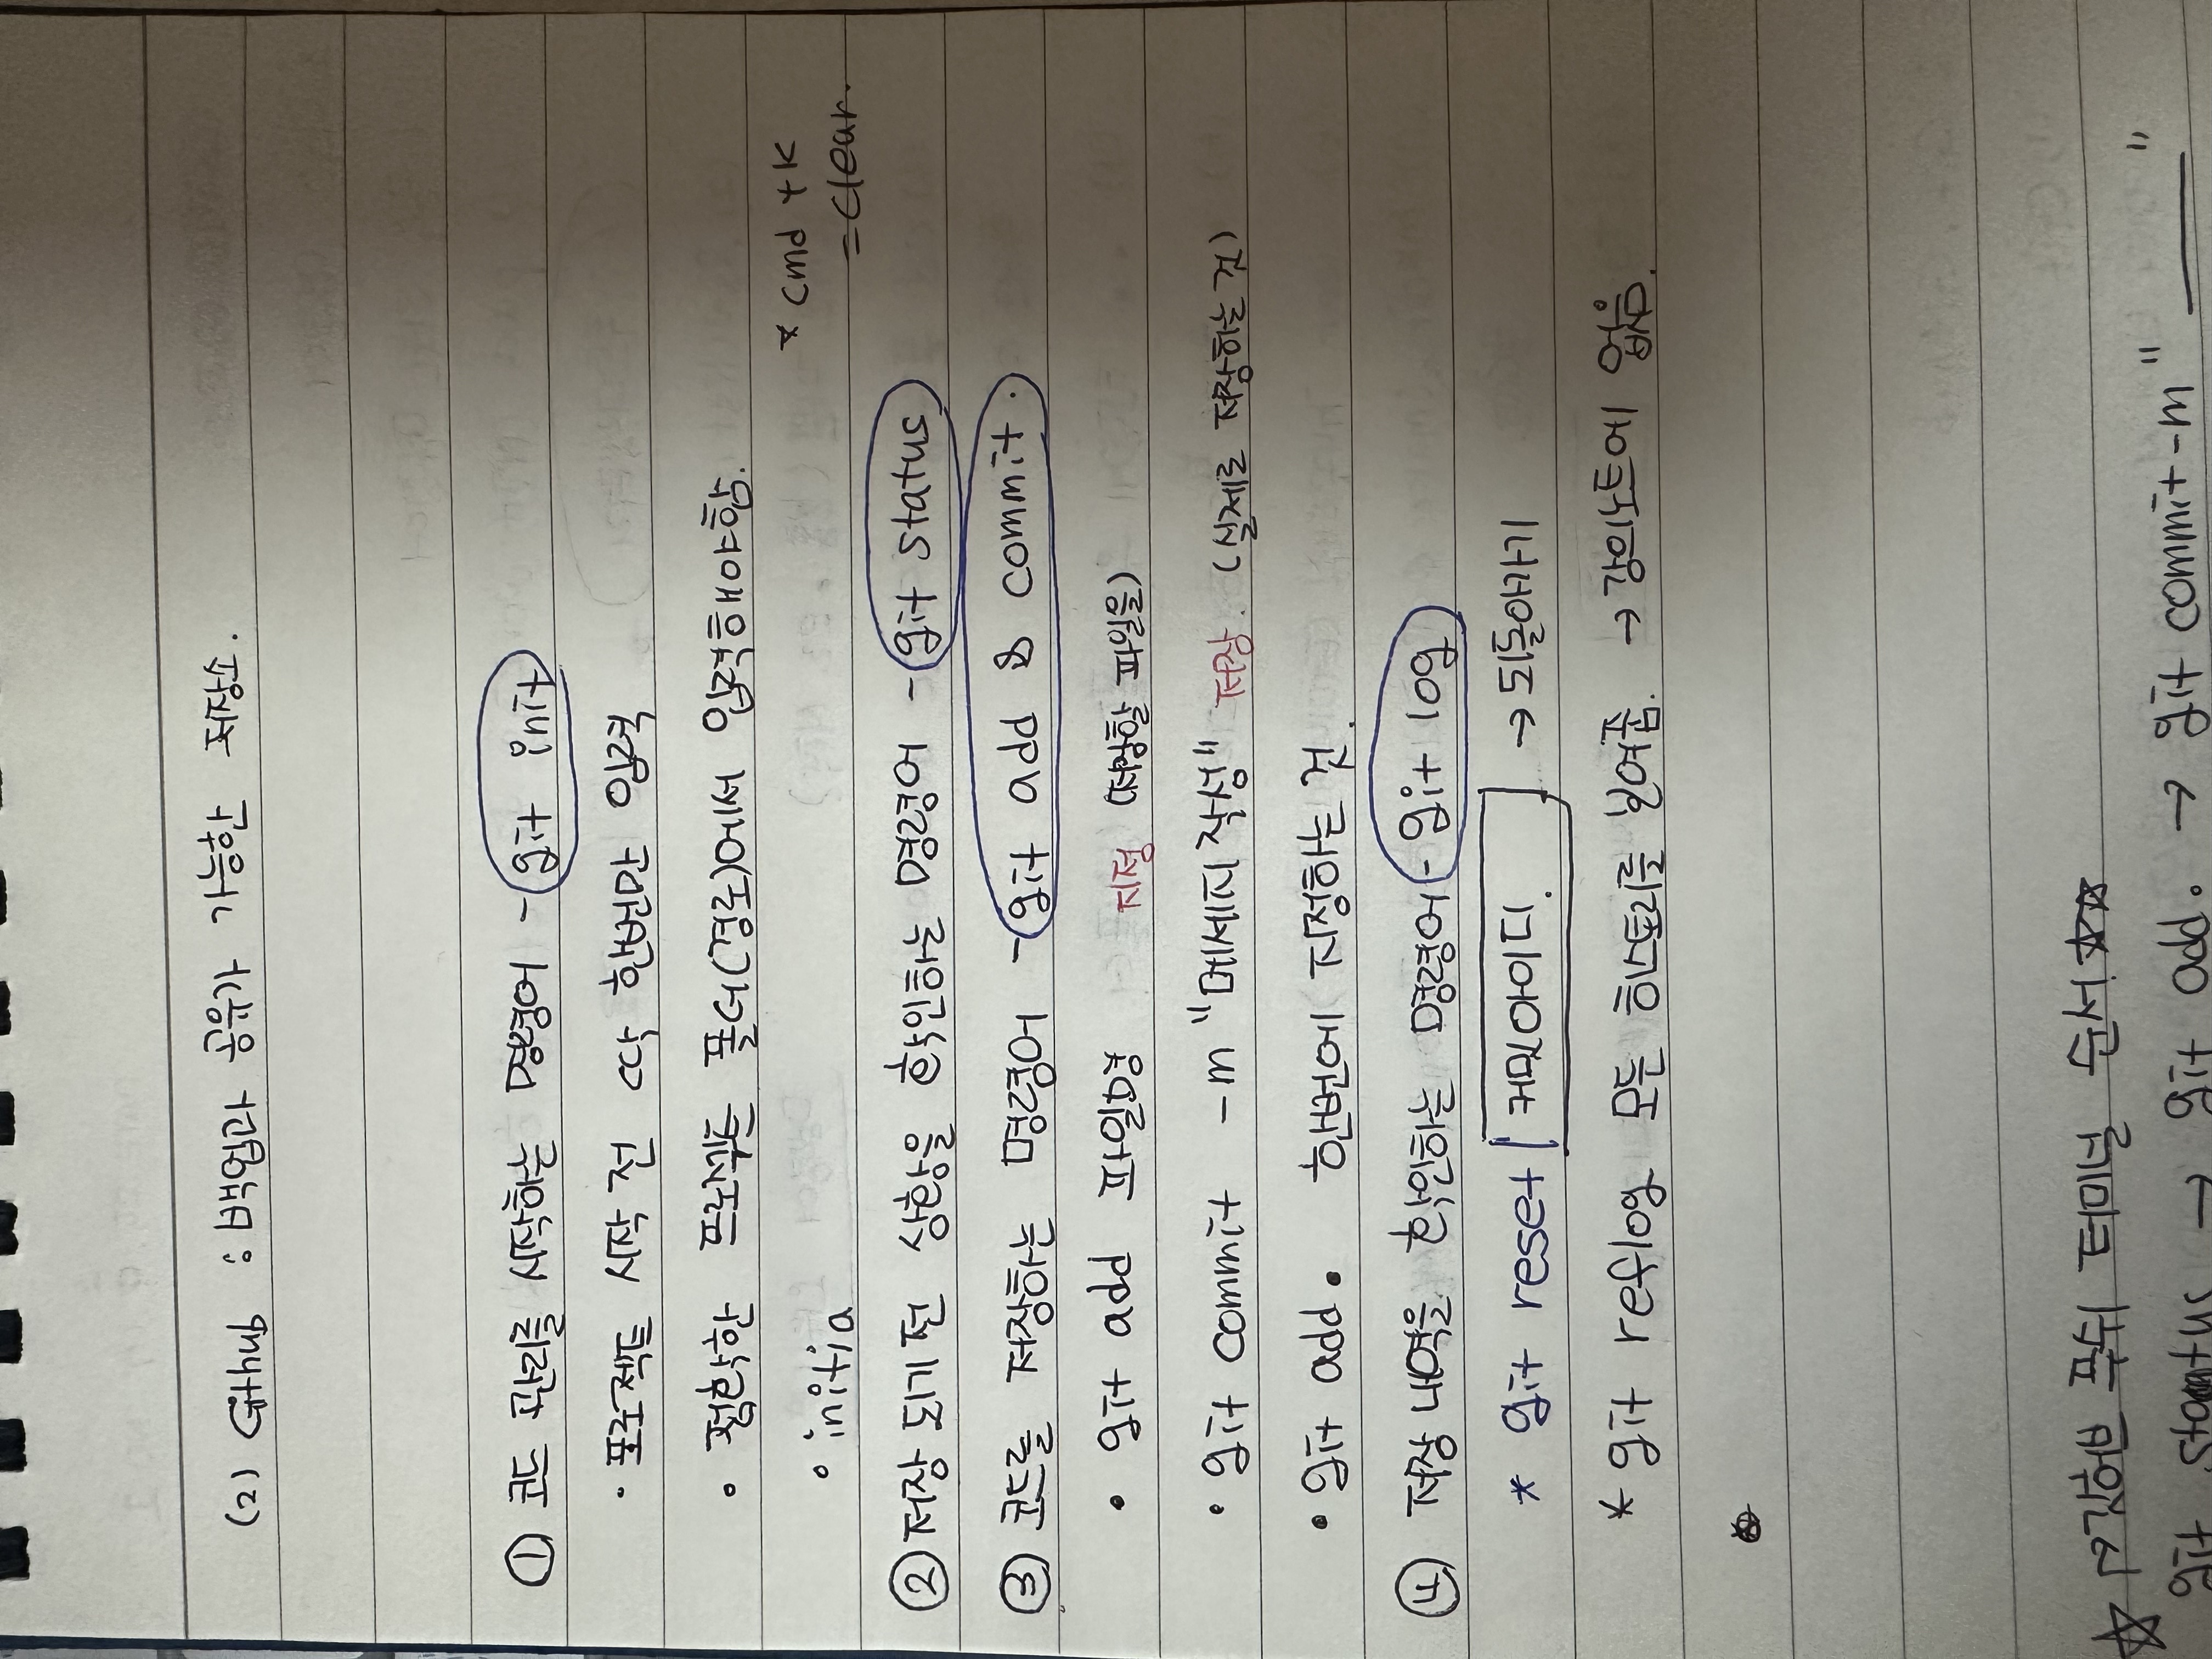 (2) Github : 백업과 공유가 가능한 저장소.
① 코드 관리를 시작하는 명령어 - git init
· 프로젝트 시작 전 딱 한번만 입력
• 정확한 프로젝트 폴더(경로)에서 입력해야함.
• initia
* cmd + K
= clear.
② 저장 되기 전 상황을 확인하는 명령어 - git status
③ 코드를 저장하는 명령어 - git add & commit.
• git add 파일명 지정 (저장할 파일을)
• git commit -m "메세지 작성" 저장 (실제로 저장하는 것)
• git add • 한번에 지정하는 것.
④ 저장 내역을 확인하는 명령어 - git log
* git reset 커밋아이디. → 되돌아가기
* git reflog 모든 히스토리를 읽어줌. → 강의자료에 있음.
☆ 시간위해 폴더 트미널 순서 ☆☆
git status → git add . → git commit -m "____"